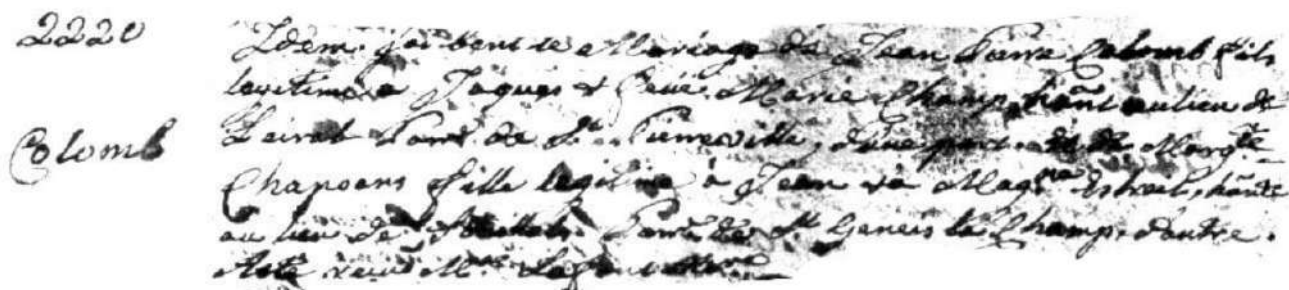 2220
Idem. j'ai beni le Mariage de Jean Pierre Colomb fils
Colomb
legitime a Jaques et feüe Marie Champ, hānt au lieu de
Parr de St. Pierreville, d'une part, et de Margte
Chapoans fille legitime à Jean et à Magna hānte
au lieu de Parr de St Geneis la Champ, d'autre.
Acte reçu Mr